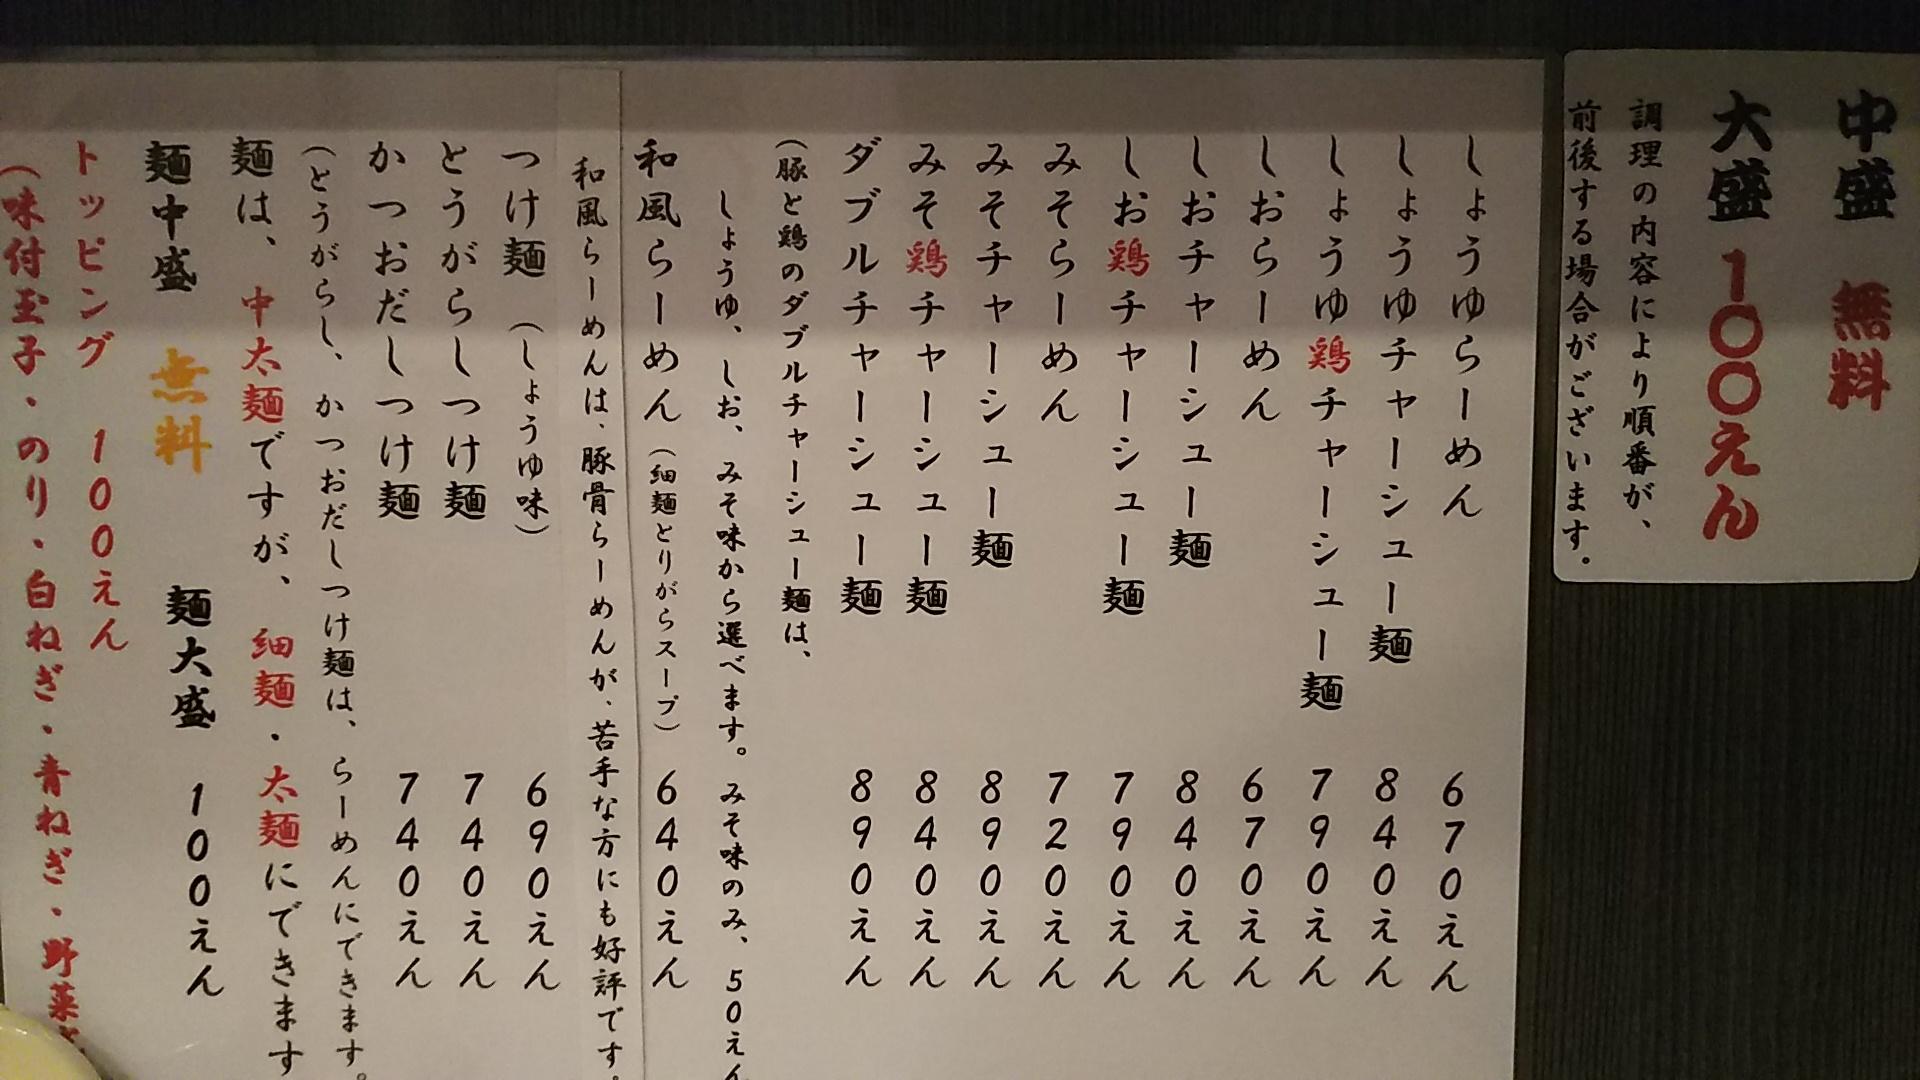 中盛 無料
大盛 100えん
調理の内容により順番が、
前後する場合がございます。
しょうゆらーめん 670えん
しょうゆチャーシュー麺 840えん
しょうゆ鶏チャーシュー麺 790えん
しおらーめん 670えん
しおチャーシュー麺 840えん
しお鶏チャーシュー麺 790えん
みそらーめん 720えん
みそチャーシュー麺 890えん
みそ鶏チャーシュー麺 840えん
ダブルチャーシュー麺 890えん
(豚と鶏のダブルチャーシュー麺は、
しょうゆ、しお、みそ味から選べます。みそ味のみ、50えん
和風らーめん(細麺とりがらスープ) 640えん
和風らーめんは、豚骨らーめんが、苦手な方にも好評です。
つけ麺 (しょうゆ味) 690えん
とうがらしつけ麺 740えん
かつおだしつけ麺 740えん
(とうがらし、かつおだしつけ麺は、らーめんにできます。
麺は、中太麺ですが、細麺・太麺にできます
麺中盛 無料 麺大盛 100えん
トッピング 100えん
(味付玉子・のり・白ねぎ・青ねぎ・野菜